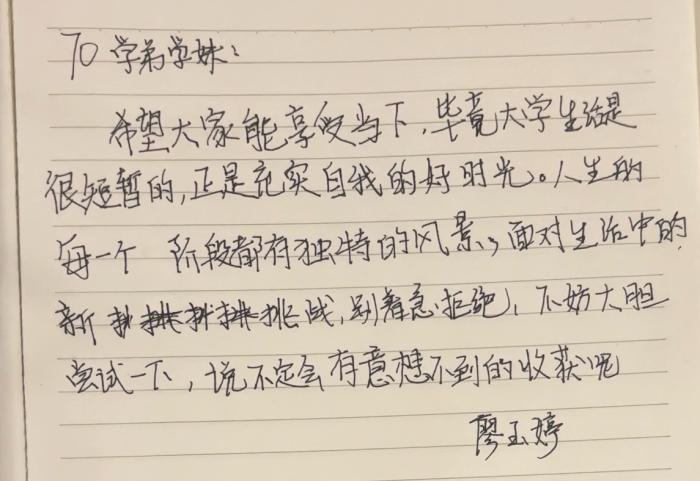 To 学弟学妹：
希望大家能享受当下，毕竟大学生活是
很短暂的，正是充实自我的好时光。人生的
每一个 阶段都有独特的风景，面对生活中的
新挑战，别着急拒绝，不妨大胆
尝试一下，说不定会有意想不到的收获呢
廖玉婷